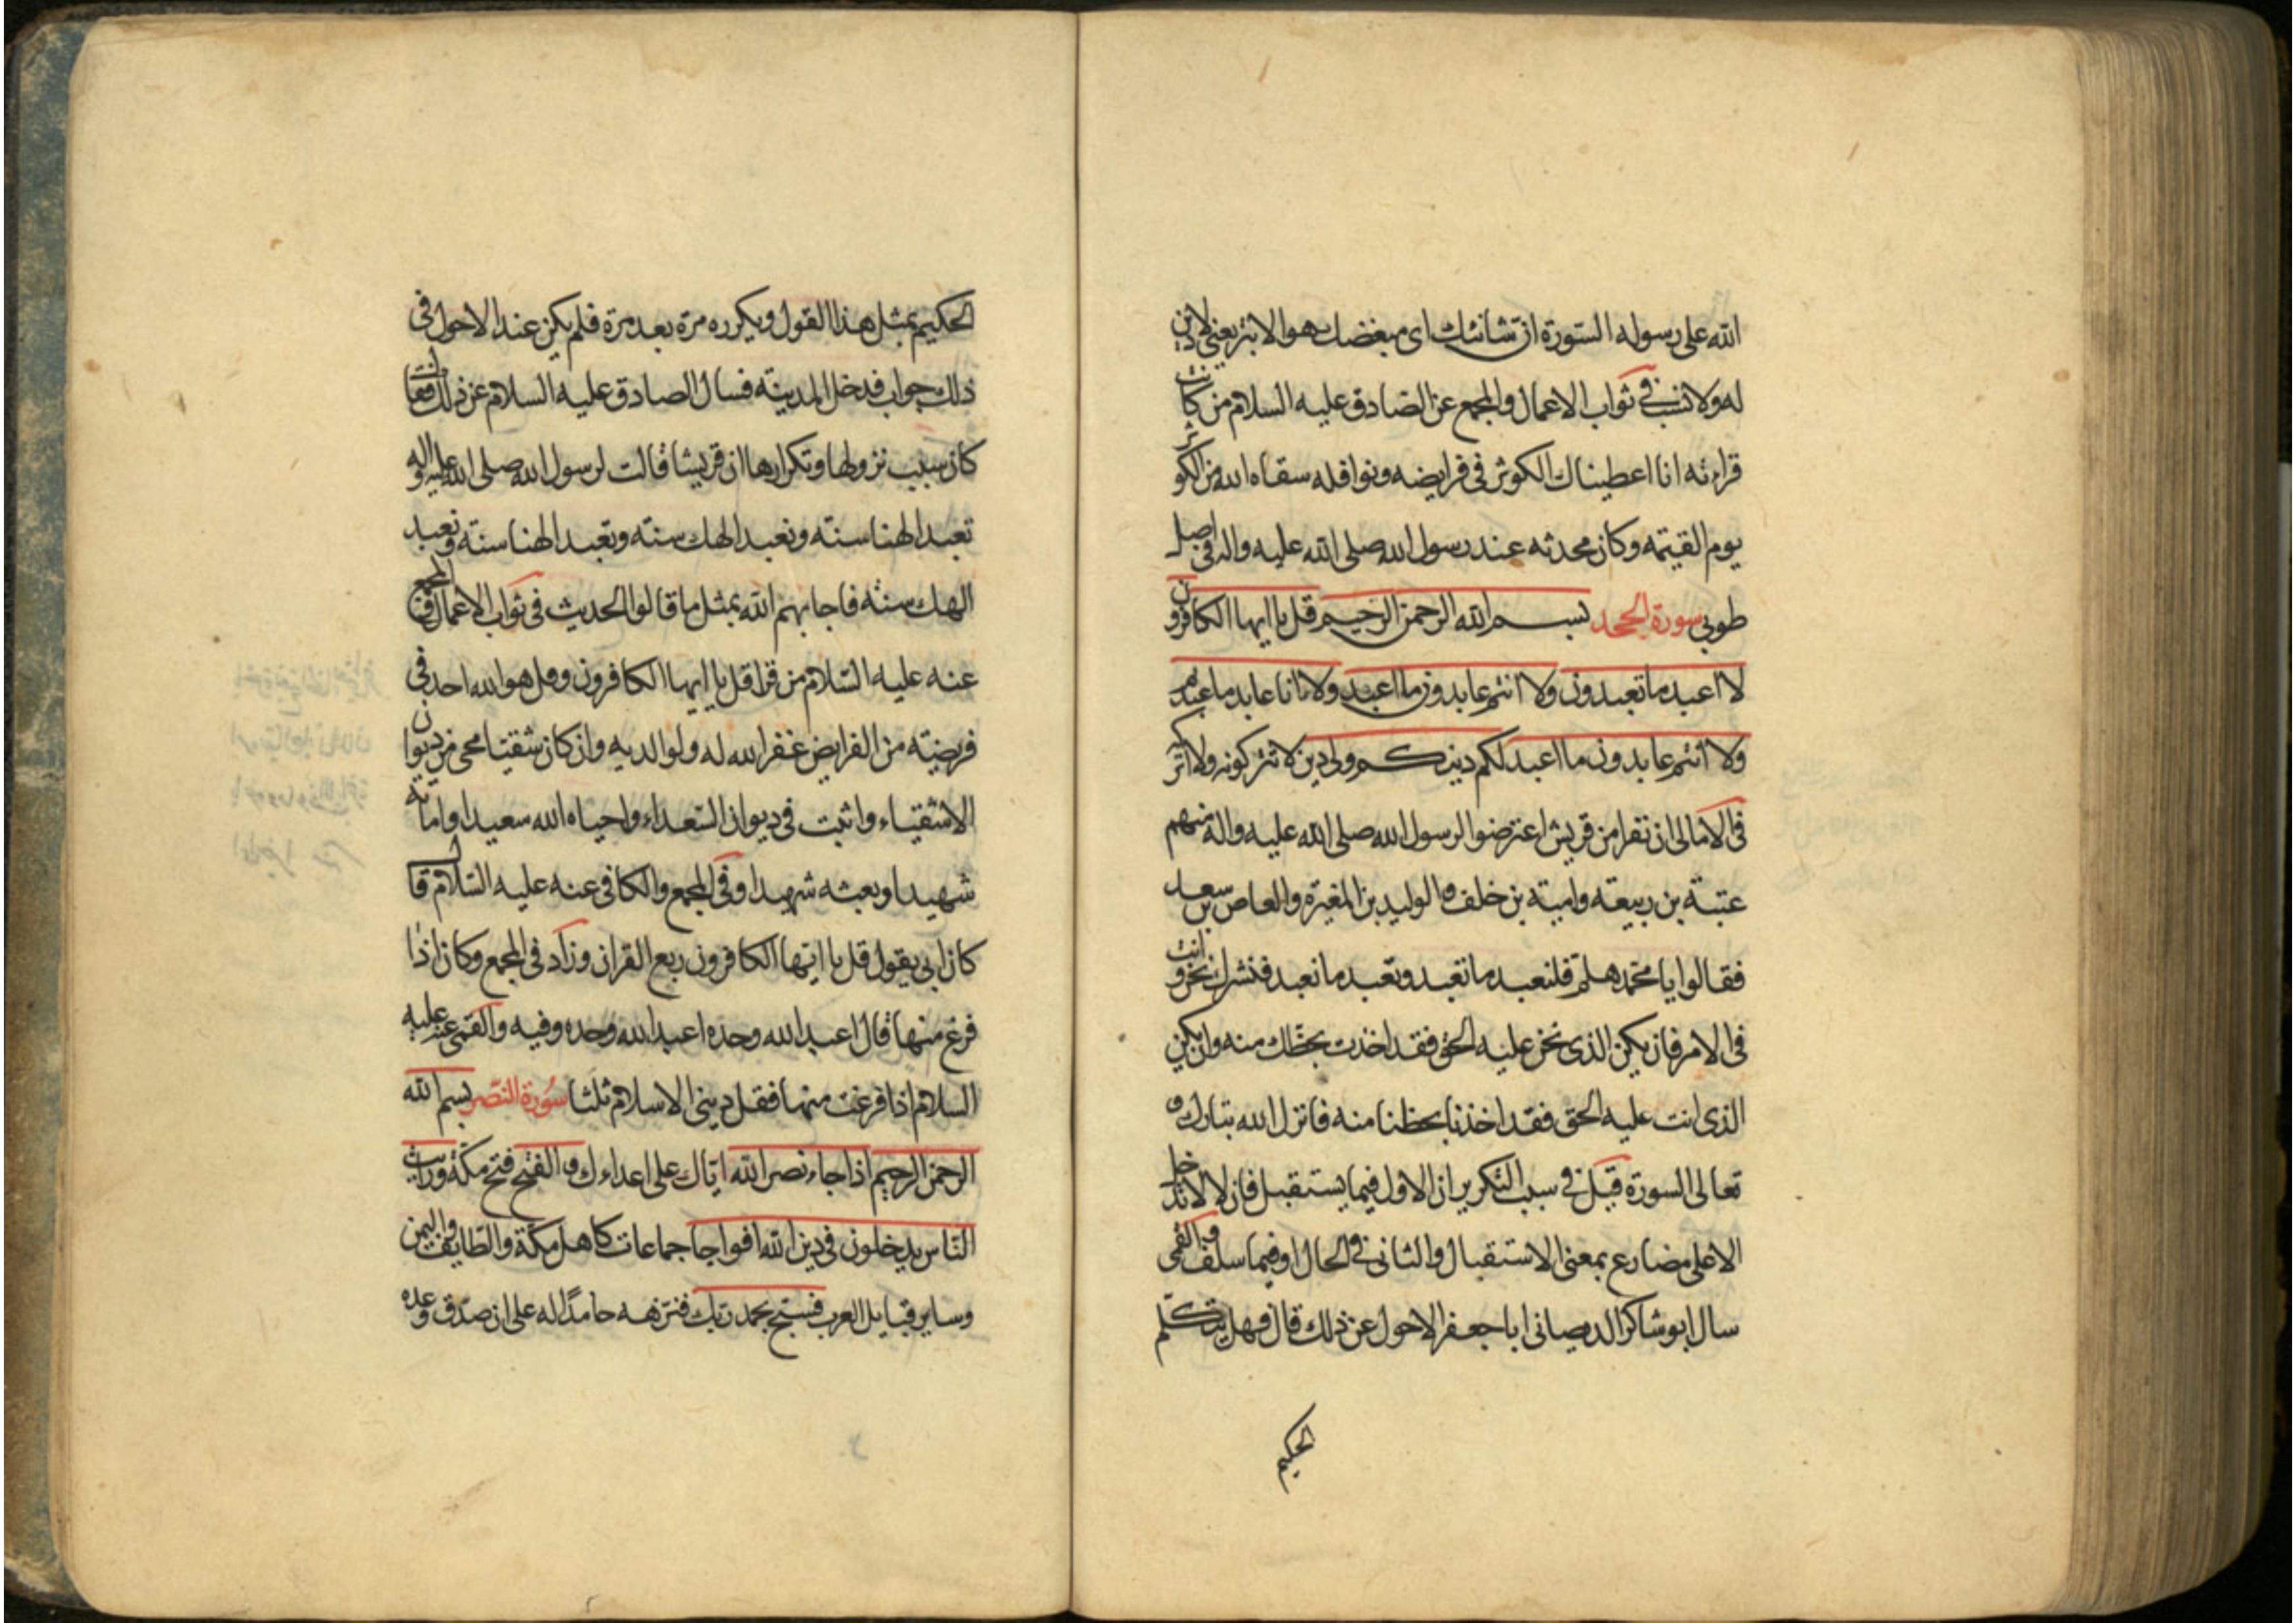 الله على رسوله السورة ان شانئك اى مبغضك هو الابتر يعنى لا دين
له ولا نسب فى ثواب الاعمال والمجمع عن الصادق عليه السلام من كانت
قراءته انا اعطيناك الكوثر فى فرايضه ونوافله سقاه الله من الكوثر
يوم القيمه وكان محدثه عند رسول الله صلى الله عليه واله فى اصل
طوبى سورة الجحد بسم الله الرحمن الرحيم قل يا ايها الكافرون
لا اعبد ما تعبدون ولا انتم عابدون ما اعبد ولا انا عابد ما عبدتم
ولا انتم عابدون ما اعبد لكم دينكم ولى دين لا تتركونه ولا اتركه
فى الامالى ان نفرا من قريش اعترضوا لرسول الله صلى الله عليه واله منهم
عتبة بن ربيعة وامية بن خلف والوليد بن المغيرة والعاص بن سعيد
فقالوا يا محمد هلم فلنعبد ما تعبد وتعبد ما نعبد فنشرك نحن وانت
فى الامر فان يكن الذى نحن عليه الحق فقد اخذت بحظك منه وان يكن
الذى انت عليه الحق فقد اخذنا بحظنا منه فانزل الله تبارك و
تعالى السورة قيل فى سبب التكرير ان الاول فيما يستقبل فان لا لا تدخل
الا على مضارع بمعنى الاستقبال والثانى فى الحال او فيما سلف والقمى
سال ابو شاكر الديصانى ابا جعفر الاحول عن ذلك قال فهل يتكلم
الحكيم
الحكيم بمثل هذا القول ويكرره مرة بعد مرة فلم يكن عند الاحول فى
ذلك جواب فدخل المدينة فسال الصادق عليه السلام عن ذلك فقال
كان سبب نزولها وتكرارها ان قريشا قالت لرسول الله صلى الله عليه واله
تعبد الهنا سنة ونعبد الهك سنة وتعبد الهنا سنة ونعبد
الهك سنة فاجابهم الله بمثل ما قالوا الحديث فى ثواب الاعمال والمجمع
عنه عليه السلام من قرا قل يا ايها الكافرون وقل هو الله احد فى
فريضة من الفرايض غفر الله له ولوالديه وان كان شقيا محى من ديوان
الاشقياء واثبت فى ديوان السعداء واحياه الله سعيدا واماته
شهيدا وبعثه شهيدا وفى المجمع والكافى عنه عليه السلام قال
كان ابى يقول قل يا ايها الكافرون ربع القران وزاد فى المجمع وكان اذا
فرغ منها قال اعبد الله وحده اعبد الله وحده وفيه والقمى عنه عليه
السلام اذا فرغت منها فقل دينى الاسلام ثلثا سورة النصر بسم الله
الرحمن الرحيم اذا جاء نصر الله اياك على اعداءك والفتح فتح مكة ورايت
الناس يدخلون فى دين الله افواجا جماعات كاهل مكة والطايف واليمن
وساير قبايل العرب فسبح بحمد ربك فنزهه حامدا له على ان صدق وعده